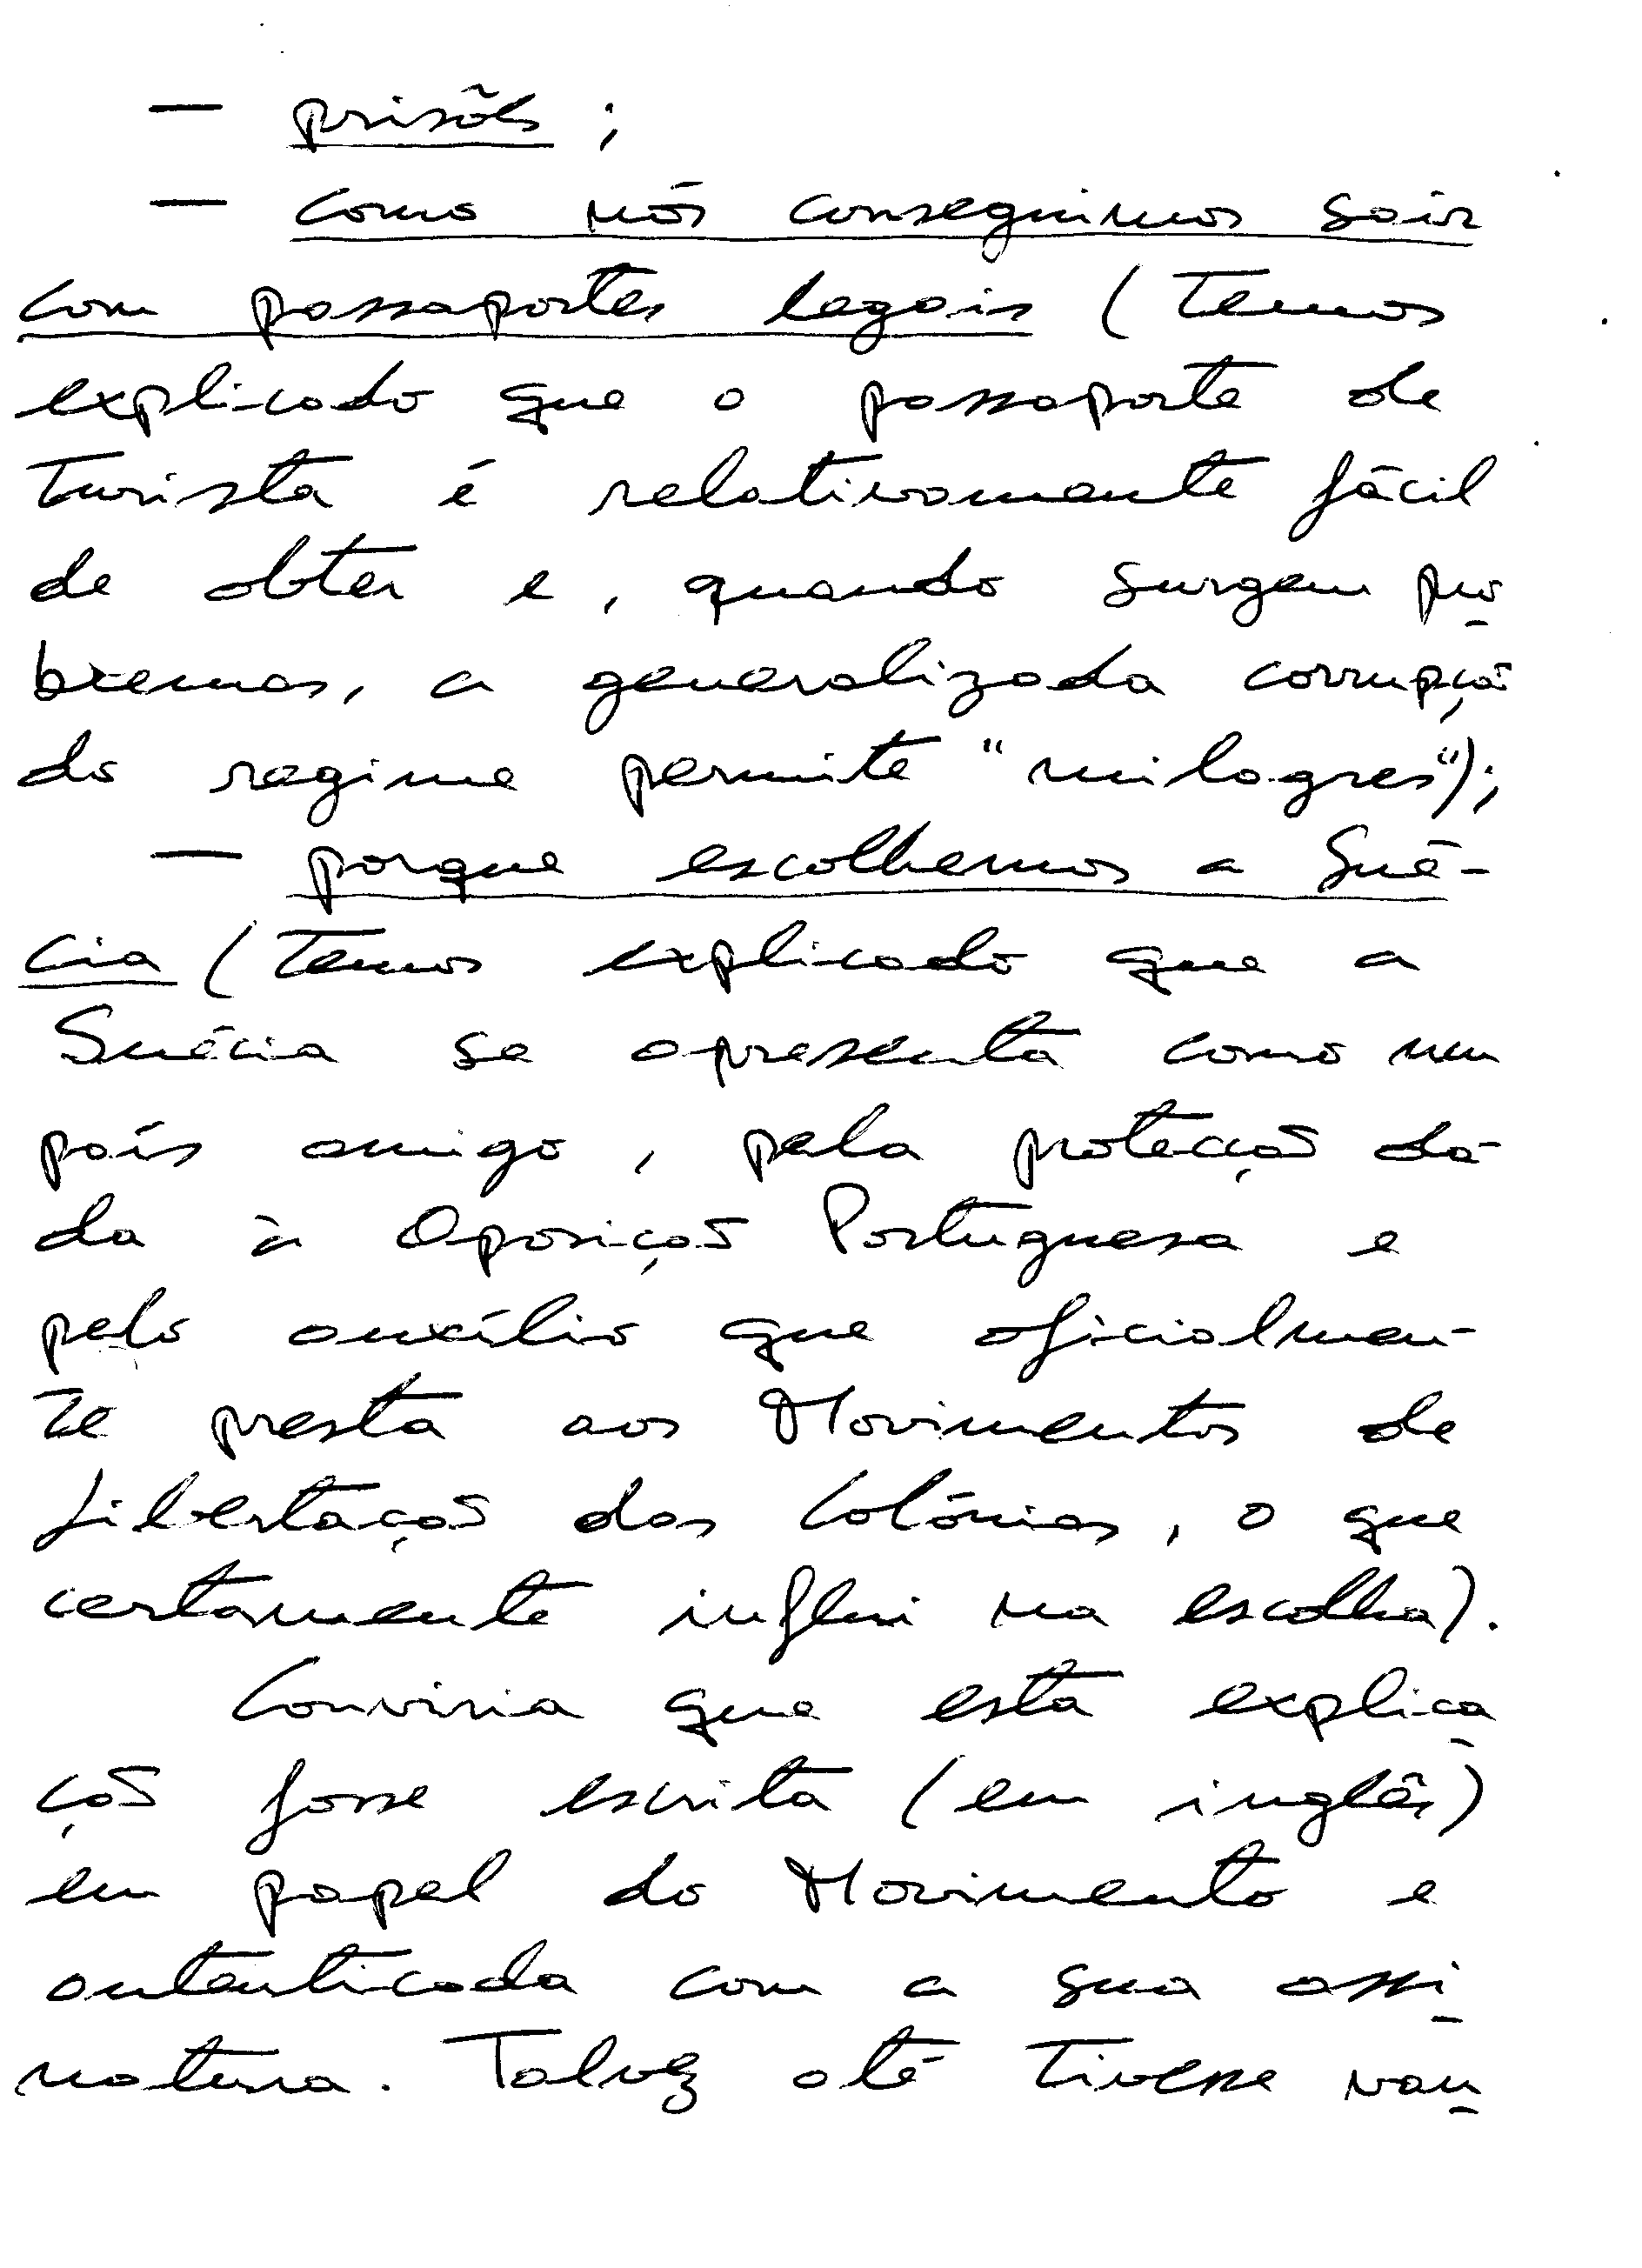 — prisões;
— como nós conseguimos sair
com passaportes legais (temos
explicado que o passaporte de
turista é relativamente fácil
de obter e, quando surgem pro
blemas, a generalizada corrupção
do regime permite "milagres");
— porque escolhemos a Sué-
cia (temos explicado que a
Suécia se apresenta como um
país amigo, pela protecção da-
da à Oposição Portuguesa e
pelo auxílio que oficialmen-
te presta aos Movimentos de
Libertação das Colónias, o que
certamente influi na escolha).
Conviria que esta explica
ção fosse escrita (em inglês)
em papel do Movimento e
autenticada com a sua assi
natura. Talvez até tivesse van